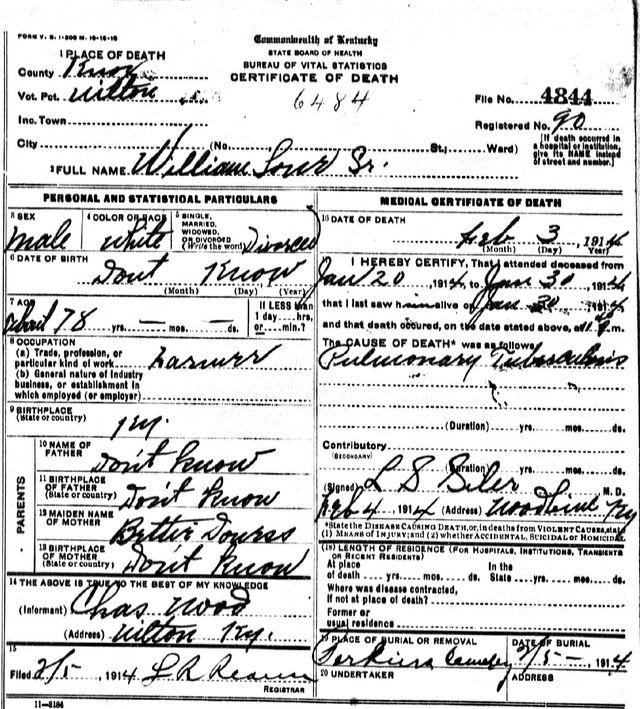 FORM V. S. 1-200 M. 10-16-10
Commonwealth of Kentucky
STATE BOARD OF HEALTH
BUREAU OF VITAL STATISTICS
CERTIFICATE OF DEATH
1 PLACE OF DEATH
County Knox
Vot. Pct.
Inc. Town
City
6484
File No. 4844
Registered No. 90
(No. St.; Ward)
[If death occurred in a hospital or institution, give its NAME instead of street and number.]
2 FULL NAME William Sr.
PERSONAL AND STATISTICAL PARTICULARS
3 SEX
male
4 COLOR OR RACE
white
5 SINGLE, MARRIED, WIDOWED, OR DIVORCED
(Write the word) Divorced
6 DATE OF BIRTH
Dont Know
(Month) (Day) (Year)
7 AGE
about 78 yrs. — mos. — ds.
If LESS than 1 day .... hrs. or .... min.?
8 OCCUPATION
(a) Trade, profession, or particular kind of work
(b) General nature of industry business, or establishment in which employed (or employer)
Farmer
9 BIRTHPLACE
(State or country)
Ky.
PARENTS
10 NAME OF FATHER
Don't Know
11 BIRTHPLACE OF FATHER
(State or country)
Don't Know
12 MAIDEN NAME OF MOTHER
13 BIRTHPLACE OF MOTHER
(State or country)
Don't Know
14 THE ABOVE IS TRUE TO THE BEST OF MY KNOWLEDGE
(Informant) Chas. Wood
(Address) Ky.
15
Filed 2/5 - 1914 L R
REGISTRAR
11—3184
MEDICAL CERTIFICATE OF DEATH
16 DATE OF DEATH
Feb 3, 1914
(Month) (Day) (Year)
I HEREBY CERTIFY, That I attended deceased from
Jan 20, 1914, to Jan 30, 1914
that I last saw him alive on Jan 30, 1914
and that death occured, on the date stated above, at m.
The CAUSE OF DEATH* was as follows:
Pulmonary Tuberculosis
(Duration) yrs. mos. ds.
Contributory
(SECONDARY)
(Duration) yrs. mos. ds.
(Signed) L S M. D.
Feb 4, 1914 (Address) Woodbine Ky
*State the DISEASE CAUSING DEATH, or, in deaths from VIOLENT CAUSES, state
(1) MEANS OF INJURY; and (2) whether ACCIDENTAL, SUICIDAL or HOMICIDAL
(18) LENGTH OF RESIDENCE (FOR HOSPITALS, INSTITUTIONS, TRANSIENTS OR RECENT RESIDENTS)
At place of death yrs. mos. ds.
In the State yrs. mos. ds.
Where was disease contracted, If not at place of death?
Former or usual residence
19 PLACE OF BURIAL OR REMOVAL
Perkins Cemetery
DATE OF BURIAL
2/5 - 1914
20 UNDERTAKER
ADDRESS